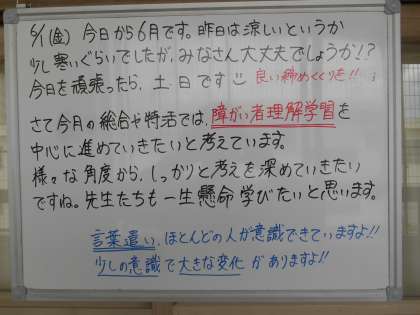 6/1(金) 今日から6月です。昨日は涼しいというか
少し寒いぐらいでしたが、みなさん大丈夫でしょうか!?
今日を頑張ったら、土日です 良い締めくくりを!!
さて今月の総合や特活では、障がい者理解学習を
中心に進めていきたいと考えています。
様々な角度から、しっかりと考えを深めていきたい
ですね。先生たちも一生懸命学びたいと思います。
言葉遣い、ほとんどの人が意識できていますよ!!
少しの意識で大きな変化がありますよ!!